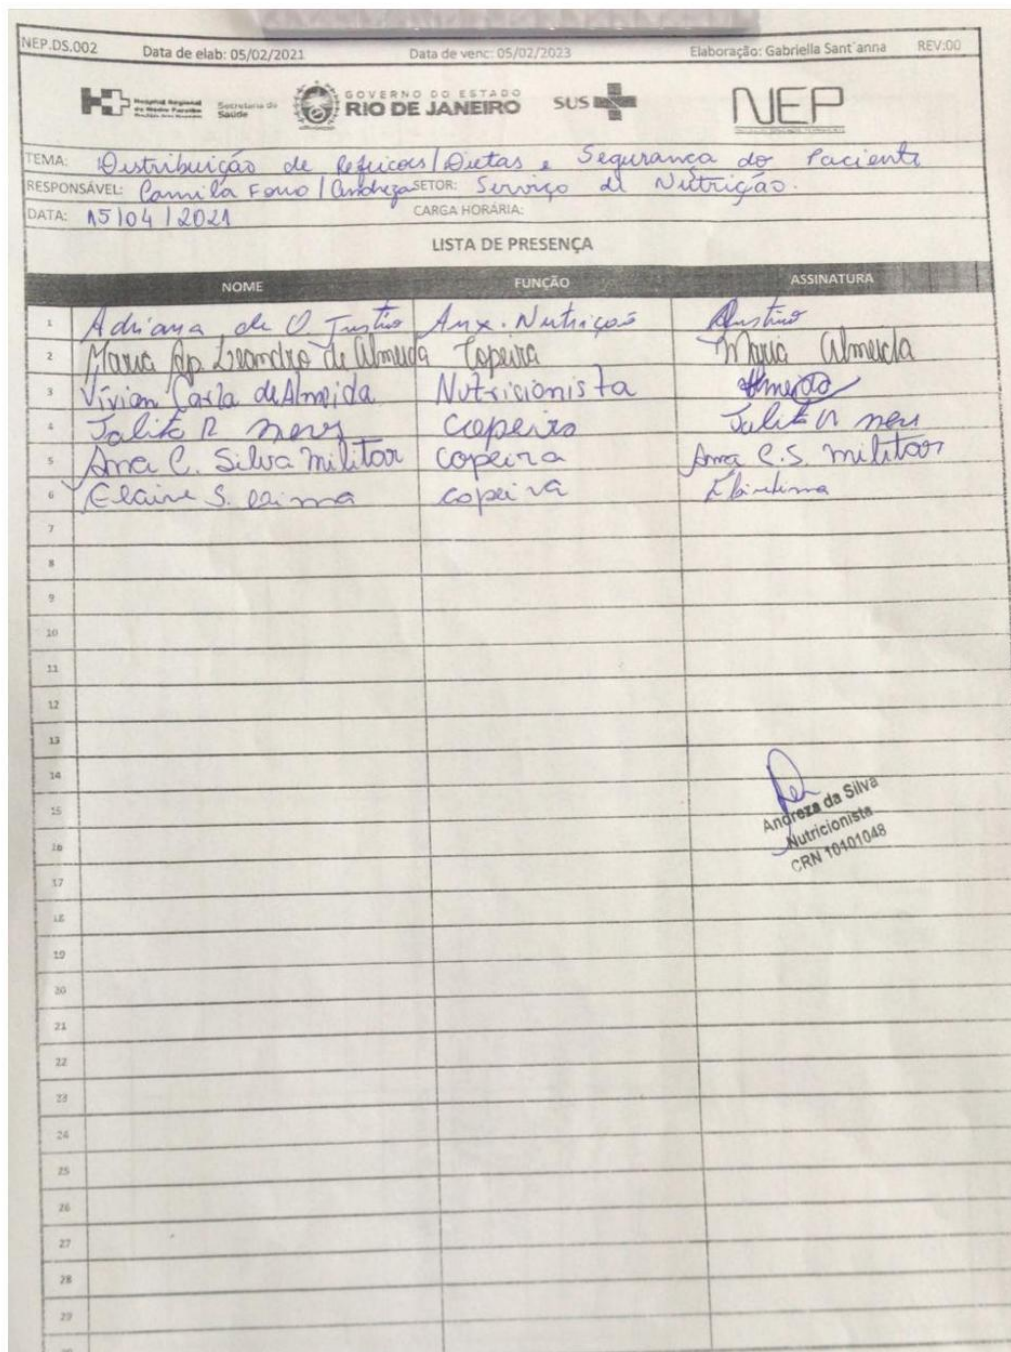 NEP.DS.002 Data de elab: 05/02/2021 Data de venc: 05/02/2023 Elaboração: Gabriella Sant´anna REV:00
Hospital Regional
do Médio Paraíba
Secretaria de
Saúde
GOVERNO DO ESTADO
RIO DE JANEIRO
SUS
NEP
TEMA: Distribuição de Refeicoes/Dietas e Segurança do Paciente
RESPONSÁVEL: Camila Fono / Andreza SETOR: Serviço de Nutrição.
DATA: 15/04/2021 CARGA HORÁRIA:
LISTA DE PRESENÇA
NOME FUNÇÃO ASSINATURA
1 Adriana de O. Justino Aux. Nutrição Justino
2 Maria Ap. Leandro de Almeida Copeira Maria Almeida
3 Vivian Carla de Almeida Nutricionista Almeida
4 Talita R neves copeira Talita R neves
5 Ana C. Silva Militar copeira Ana C.S. militar
6 Elaine S. Lima copeira
7
8
9
10
11
12
13
14
15
16
17
18
19
20
21
22
23
24
25
26
27
28
29
Andreza da Silva
Nutricionista
CRN 10101048